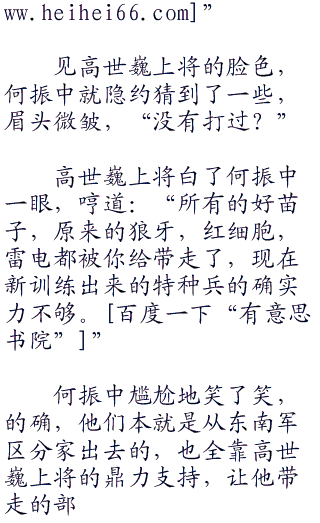 ww.heihei66.com]”
见高世巍上将的脸色，
何振中就隐约猜到了一些，
眉头微皱，“没有打过？”
高世巍上将白了何振中
一眼，哼道：“所有的好苗
子，原来的狼牙，红细胞，
雷电都被你给带走了，现在
新训练出来的特种兵的确实
力不够。[百度一下“有意思
书院”]”
何振中尴尬地笑了笑，
的确，他们本就是从东南军
区分家出去的，也全靠高世
巍上将的鼎力支持，让他带
走的部